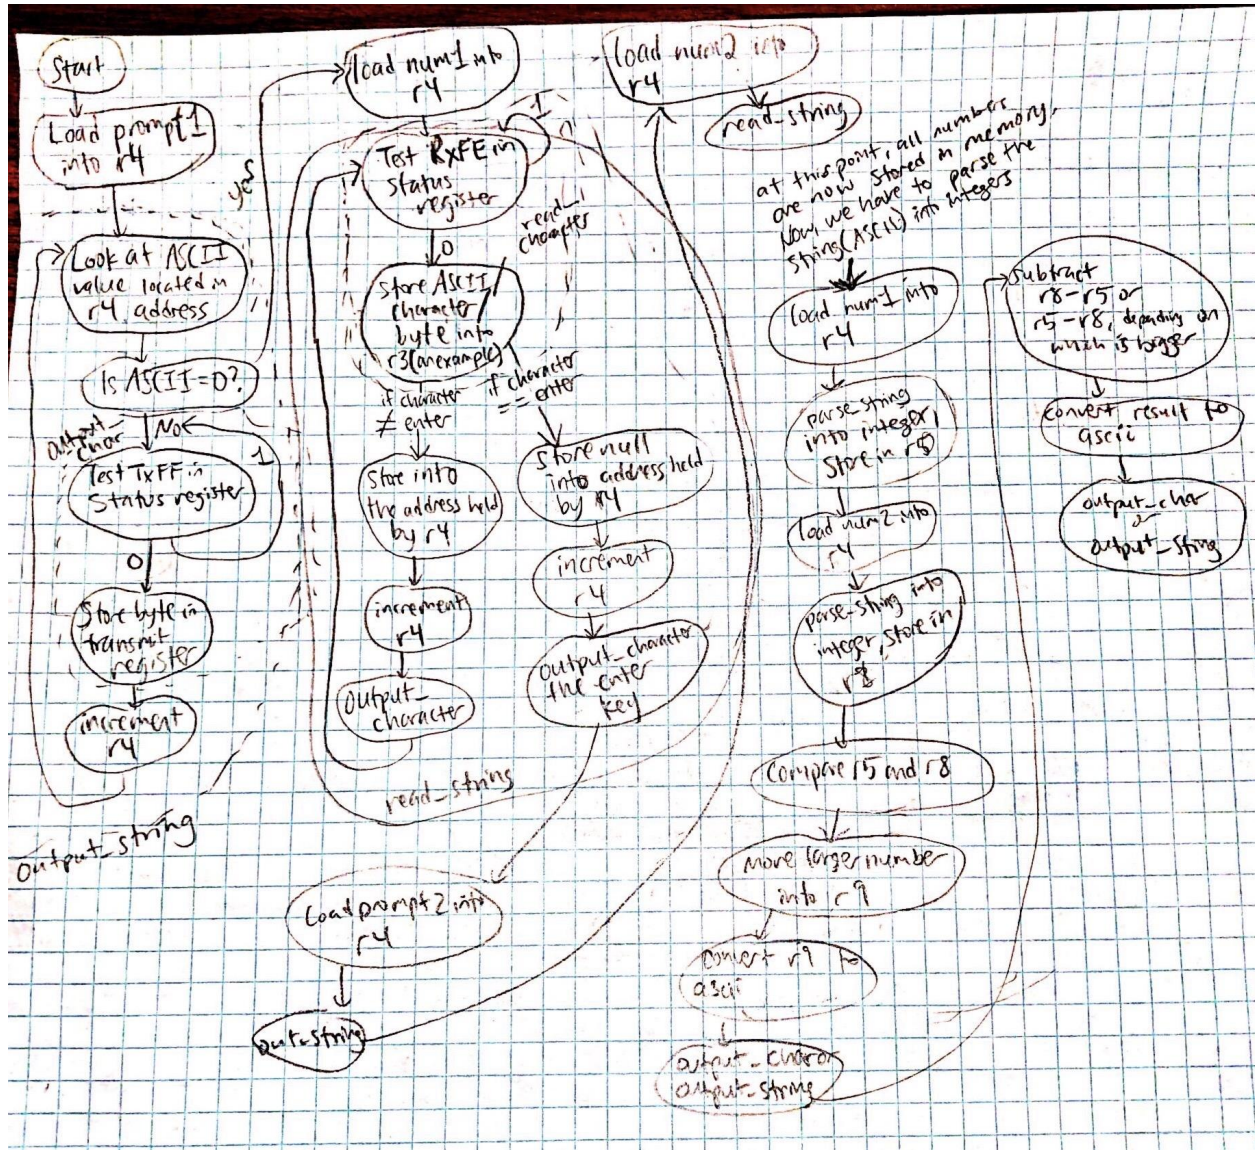 Start
Load prompt1
into r4
Look at ASCII
value located in
r4 address
Is ASCII = 0?
yes
output_
char
No
Test TxFF in
Status register
1
0
Store byte in
transmit
register
increment
r4
output_string
load num1 into
r4
Test RxFE in
Status
register
1
0
read_
character
Store ASCII
character
byte into
r3 (an example)
if character
≠ enter
if character
== enter
Store into
the address held
by r4
increment
r4
output_
character
Store null
into address held
by r4
increment
r4
output_character
the enter
key
read_string
Load prompt2 into
r4
out_string
load num2 into
r4
read_string
at this point, all numbers
are now stored in memory.
Now, we have to parse the
string (ASCII) into integers
load num1 into
r4
parse_string
into integer,
Store in r5
load num2 into
r4
parse_string into
integer, store in
r8
Compare r5 and r8
move larger number
into r9
convert r9 to
ascii
output_char or
output_string
Subtract
r8-r5 or
r5-r8, depending on
which is bigger
convert result to
ascii
output_char
or
output_string